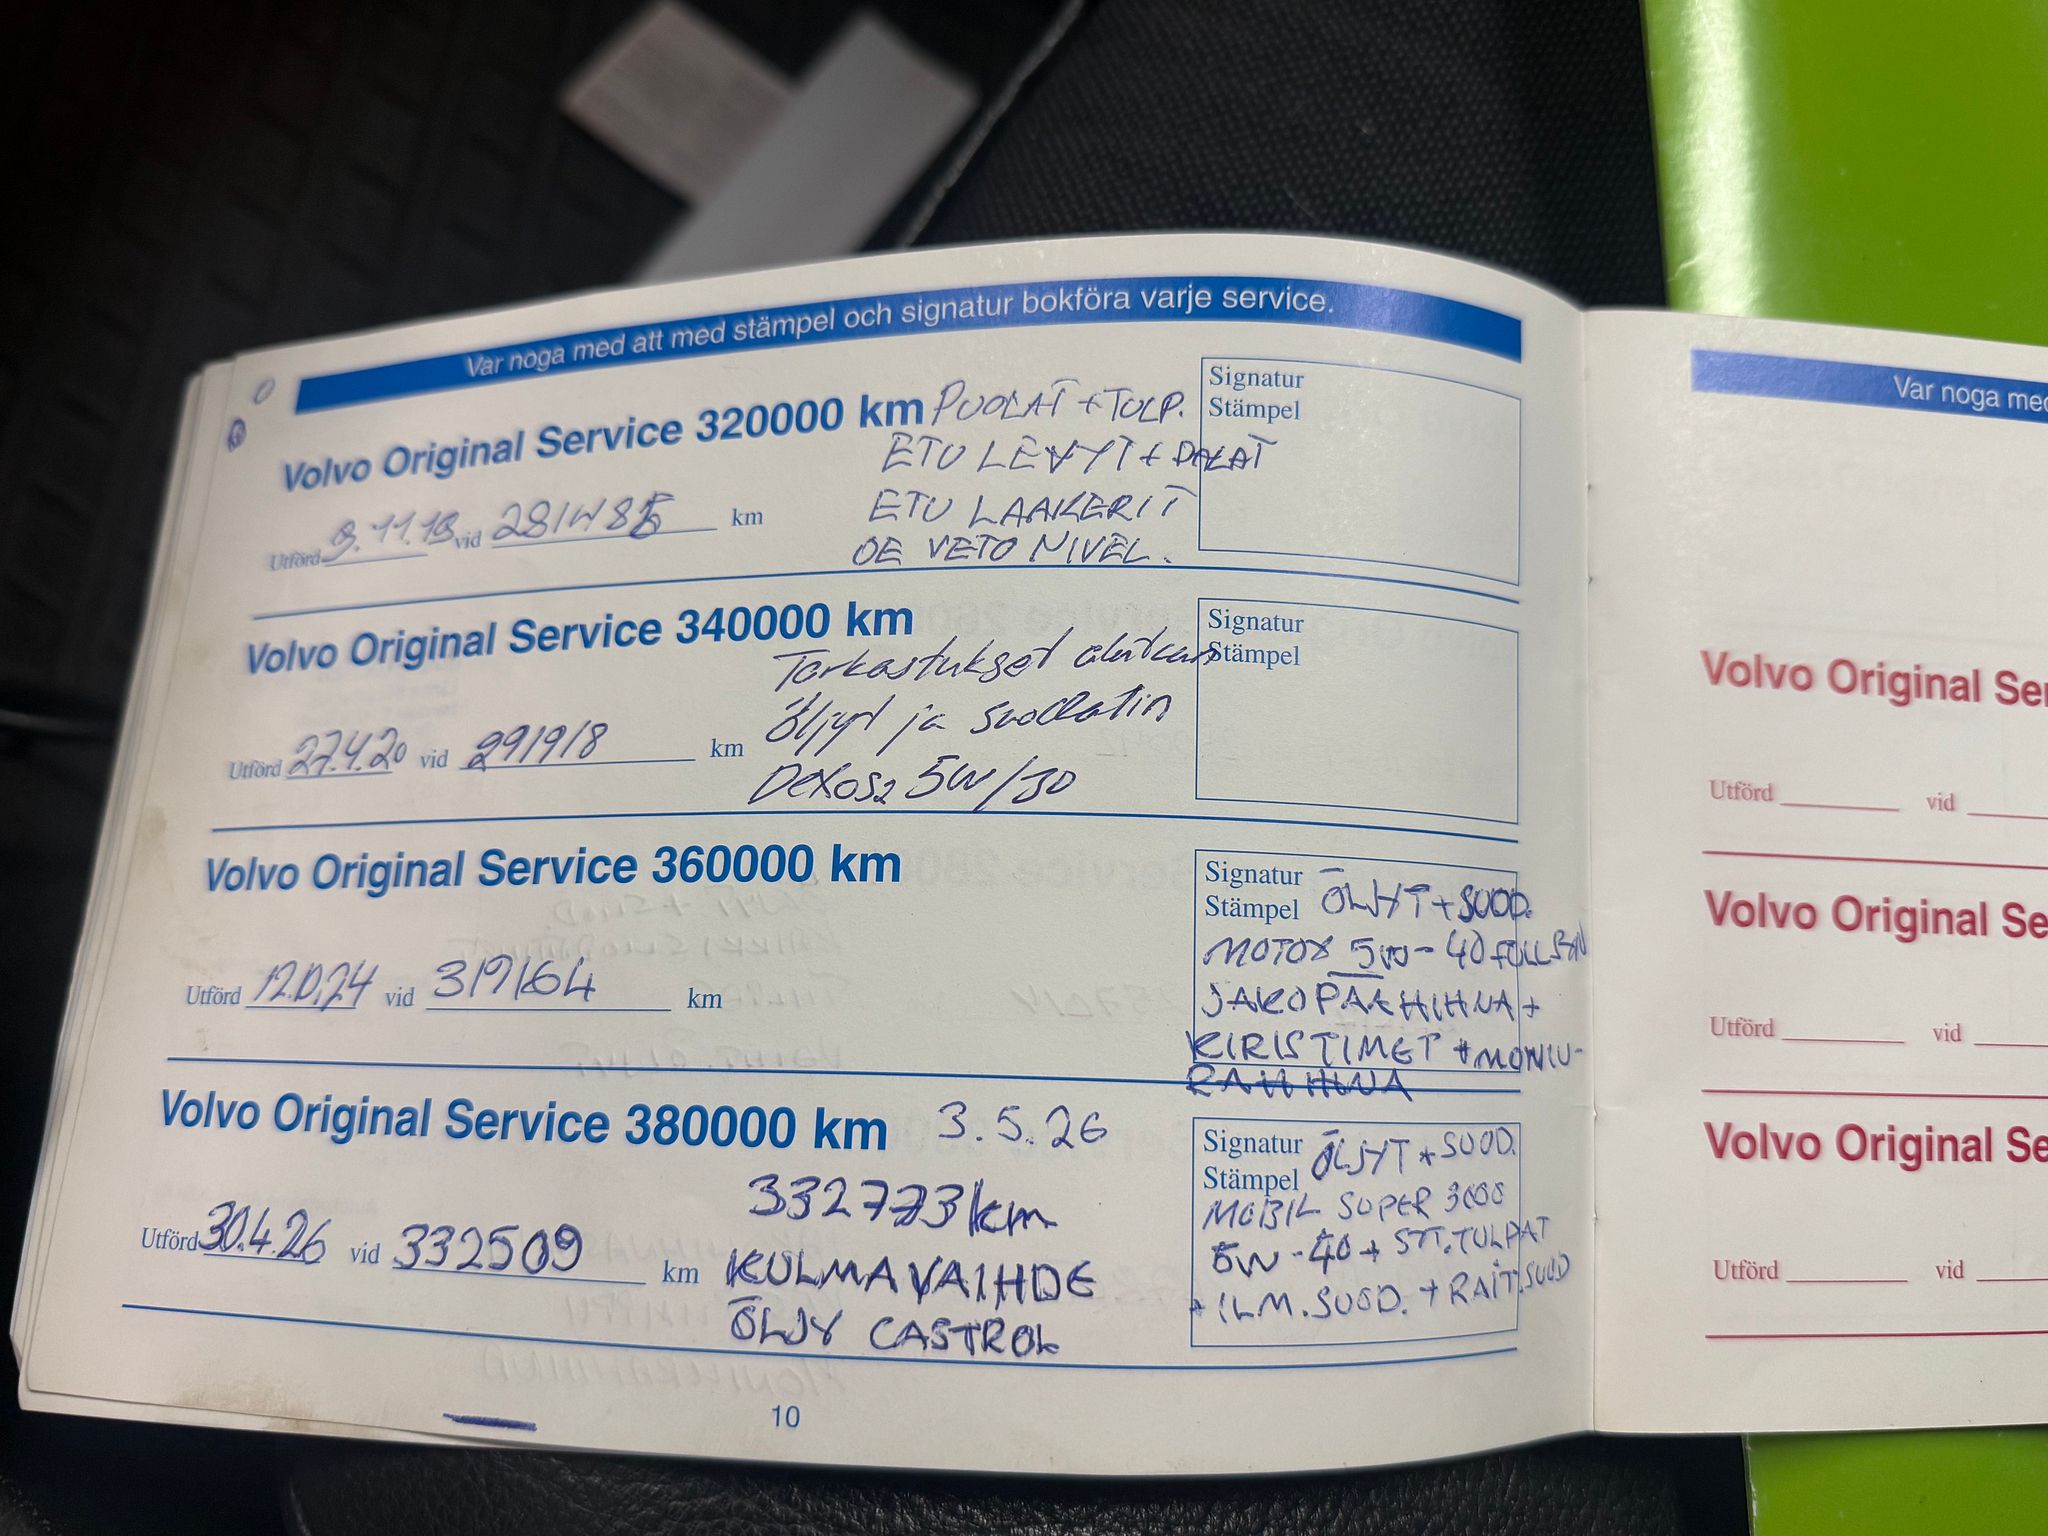 Var noga med att med stämpel och signatur bokföra varje service.
Volvo Original Service 320000 km
PUOLAT + TULP.
ETU LEVYT + PALAT
ETU LAAKERIT
OE VETO NIVEL.
Utförd vid km
Signatur
Stämpel
Volvo Original Service 340000 km
Tarkastukset
öljyt ja suodatin
Dexos2 5W/30
Utförd 27.4.20 vid 291918 km
Signatur
Stämpel
Volvo Original Service 360000 km
Utförd vid 319164 km
Signatur
Stämpel
ÖLJYT + SUOD.
5W-40
JAKOPÄÄHIHNA +
KIRISTIMET + MONIU-
RAHIHNA
Volvo Original Service 380000 km
3.5.26
332773 km
KULMAVAIHDE
ÖLJY CASTROL
Utförd 30.4.26 vid 332509 km
Signatur
Stämpel
ÖLJYT + SUOD.
MOBIL SUPER 3000
5W-40 + SYT.TULPAT
+ ILM.SUOD. + RAIT.SUOD
10
Var noga med
Volvo Original Se
Utförd vid
Volvo Original Se
Utförd vid
Volvo Original Se
Utförd vid